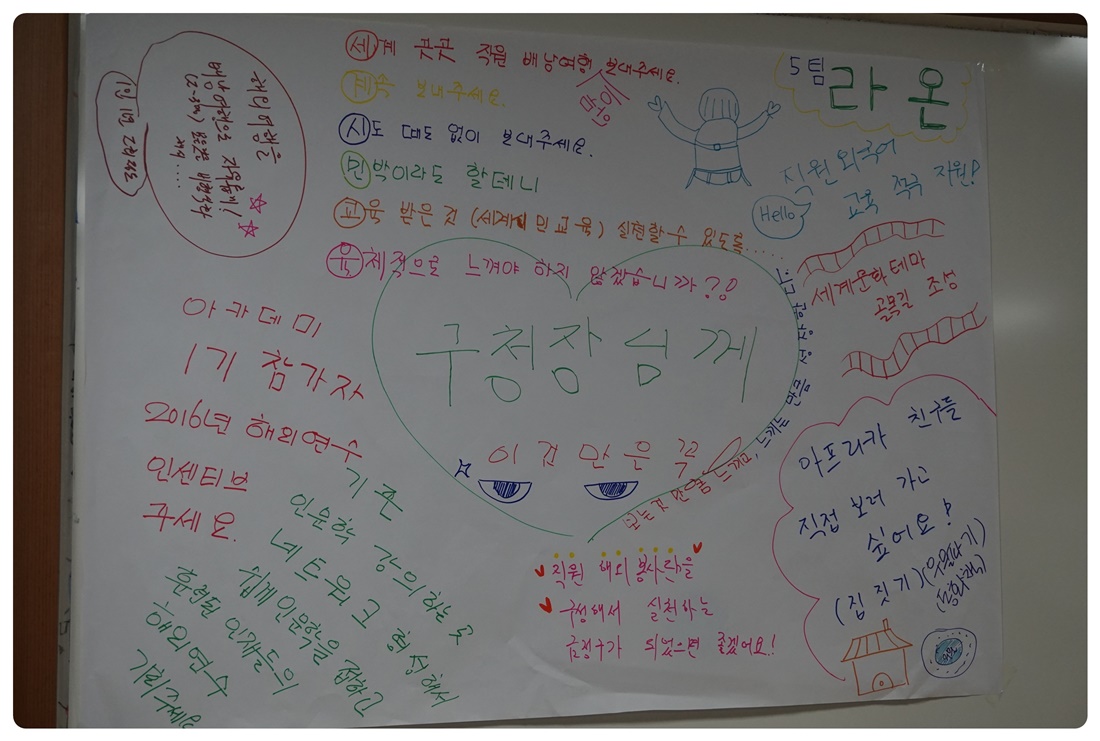 세계 곳곳 직원 배낭여행 보내주세요.
많이
계속 보내주세요.
시도 때도 없이 보내주세요.
민박이라도 할테니
교육 받은 것 (세계시민교육) 실천할 수 있도록....
육체적으로 느껴야 하지 않겠습니까??
5팀
라온
해외여행을
배낭여행으로 자유롭게!
1인 1년 2회로
직원 외국어
교육 적극 지원!
Hello
세계문화테마
골목길 조성
구청장님께
이것만은 꼭
보는 것 만큼 느끼며, 느끼는 만큼
아카데미
1기 참가자
2016년 해외연수
인센티브
주세요.
기존
인문학 강의하는 곳
네트워크 형성해서
쉽게 인문학을 접하고
훈련된 인재들의
해외연수
기회주세요
직원 해외 봉사단을
구성해서 실천하는
금정구가 되었으면 좋겠어요!
아프리카 친구들
직접 보러 가고
싶어요!
(집 짓기)(우물파기)